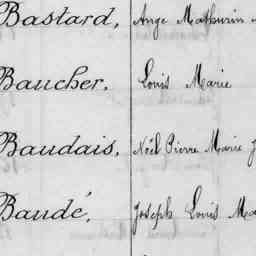 Bastard, Ange Mathurin
Baucher, Louis Marie
Baudais, Noël Pierre Marie J
Baudé, Joseph Louis Ma